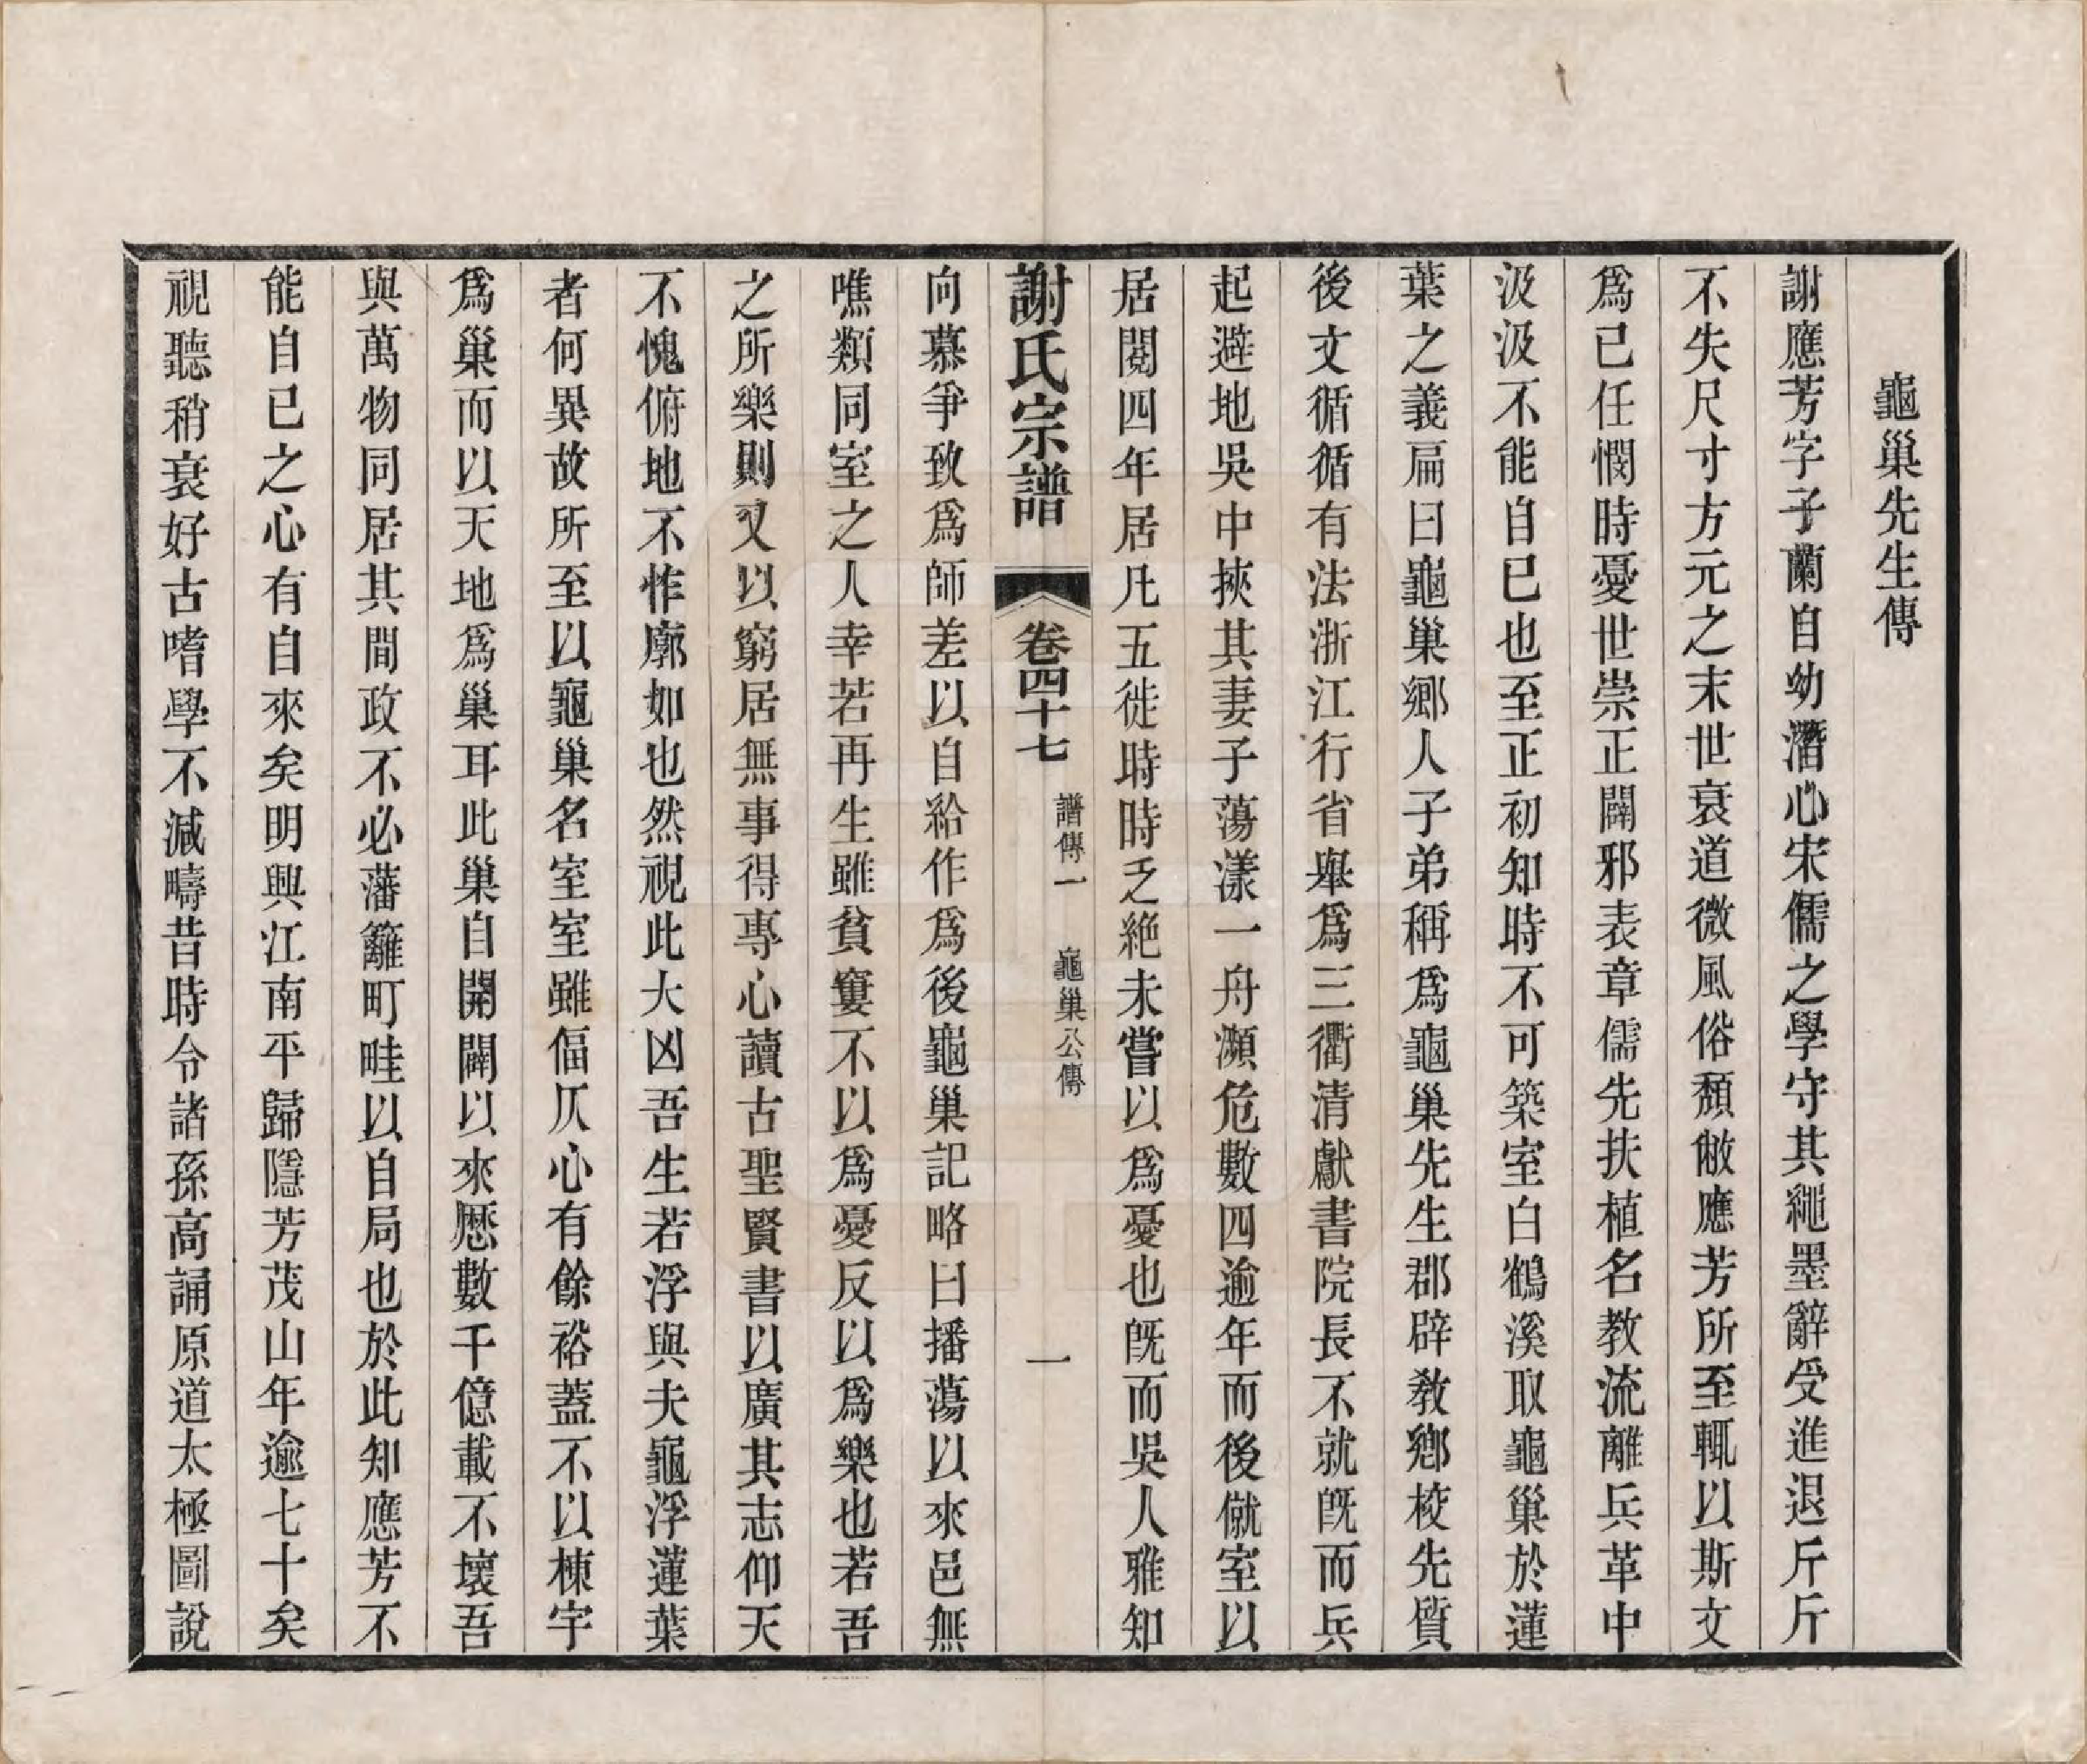 龜巢先生傳
謝應芳字子蘭自幼潛心宋儒之學守其繩墨辭受進退斤斤
不失尺寸方元之末世衰道微風俗頹敝應芳所至輒以斯文
爲已任憫時憂世崇正闢邪表章儒先扶植名教流離兵革中
汲汲不能自已也至正初知時不可築室白鶴溪取龜巢於蓮
葉之義扁曰龜巢鄉人子弟稱爲龜巢先生郡辟教鄉校先質
後文循循有法浙江行省舉爲三衢清獻書院長不就旣而兵
起避地吳中挾其妻子蕩漾一舟瀕危數四逾年而後僦室以
居閱四年居凡五徙時時乏絶未嘗以爲憂也旣而吳人雅知
謝氏宗譜 卷四十七 譜傳一 龜巢公傳 一
向慕爭致爲師差以自給作爲後龜巢記略曰播蕩以來邑無
噍類同室之人幸若再生雖貧窶不以爲憂反以爲樂也若吾
之所樂則又以窮居無事得專心讀古聖賢書以廣其志仰天
不愧俯地不怍廓如也然視此大凶吾生若浮與夫龜浮蓮葉
者何異故所至以龜巢名室室雖偪仄心有餘裕蓋不以棟宇
爲巢而以天地爲巢耳此巢自開闢以來歷數千億載不壞吾
與萬物同居其間政不必藩籬町畦以自局也於此知應芳不
能自已之心有自來矣明興江南平歸隱芳茂山年逾七十矣
視聽稍衰好古嗜學不減疇昔時令諸孫高誦原道太極圖說